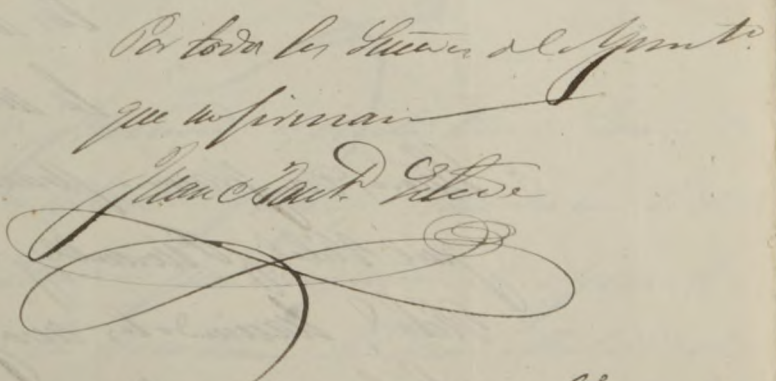 Por todos los Señores del Ayunto.
que no firman
Juan Baut.